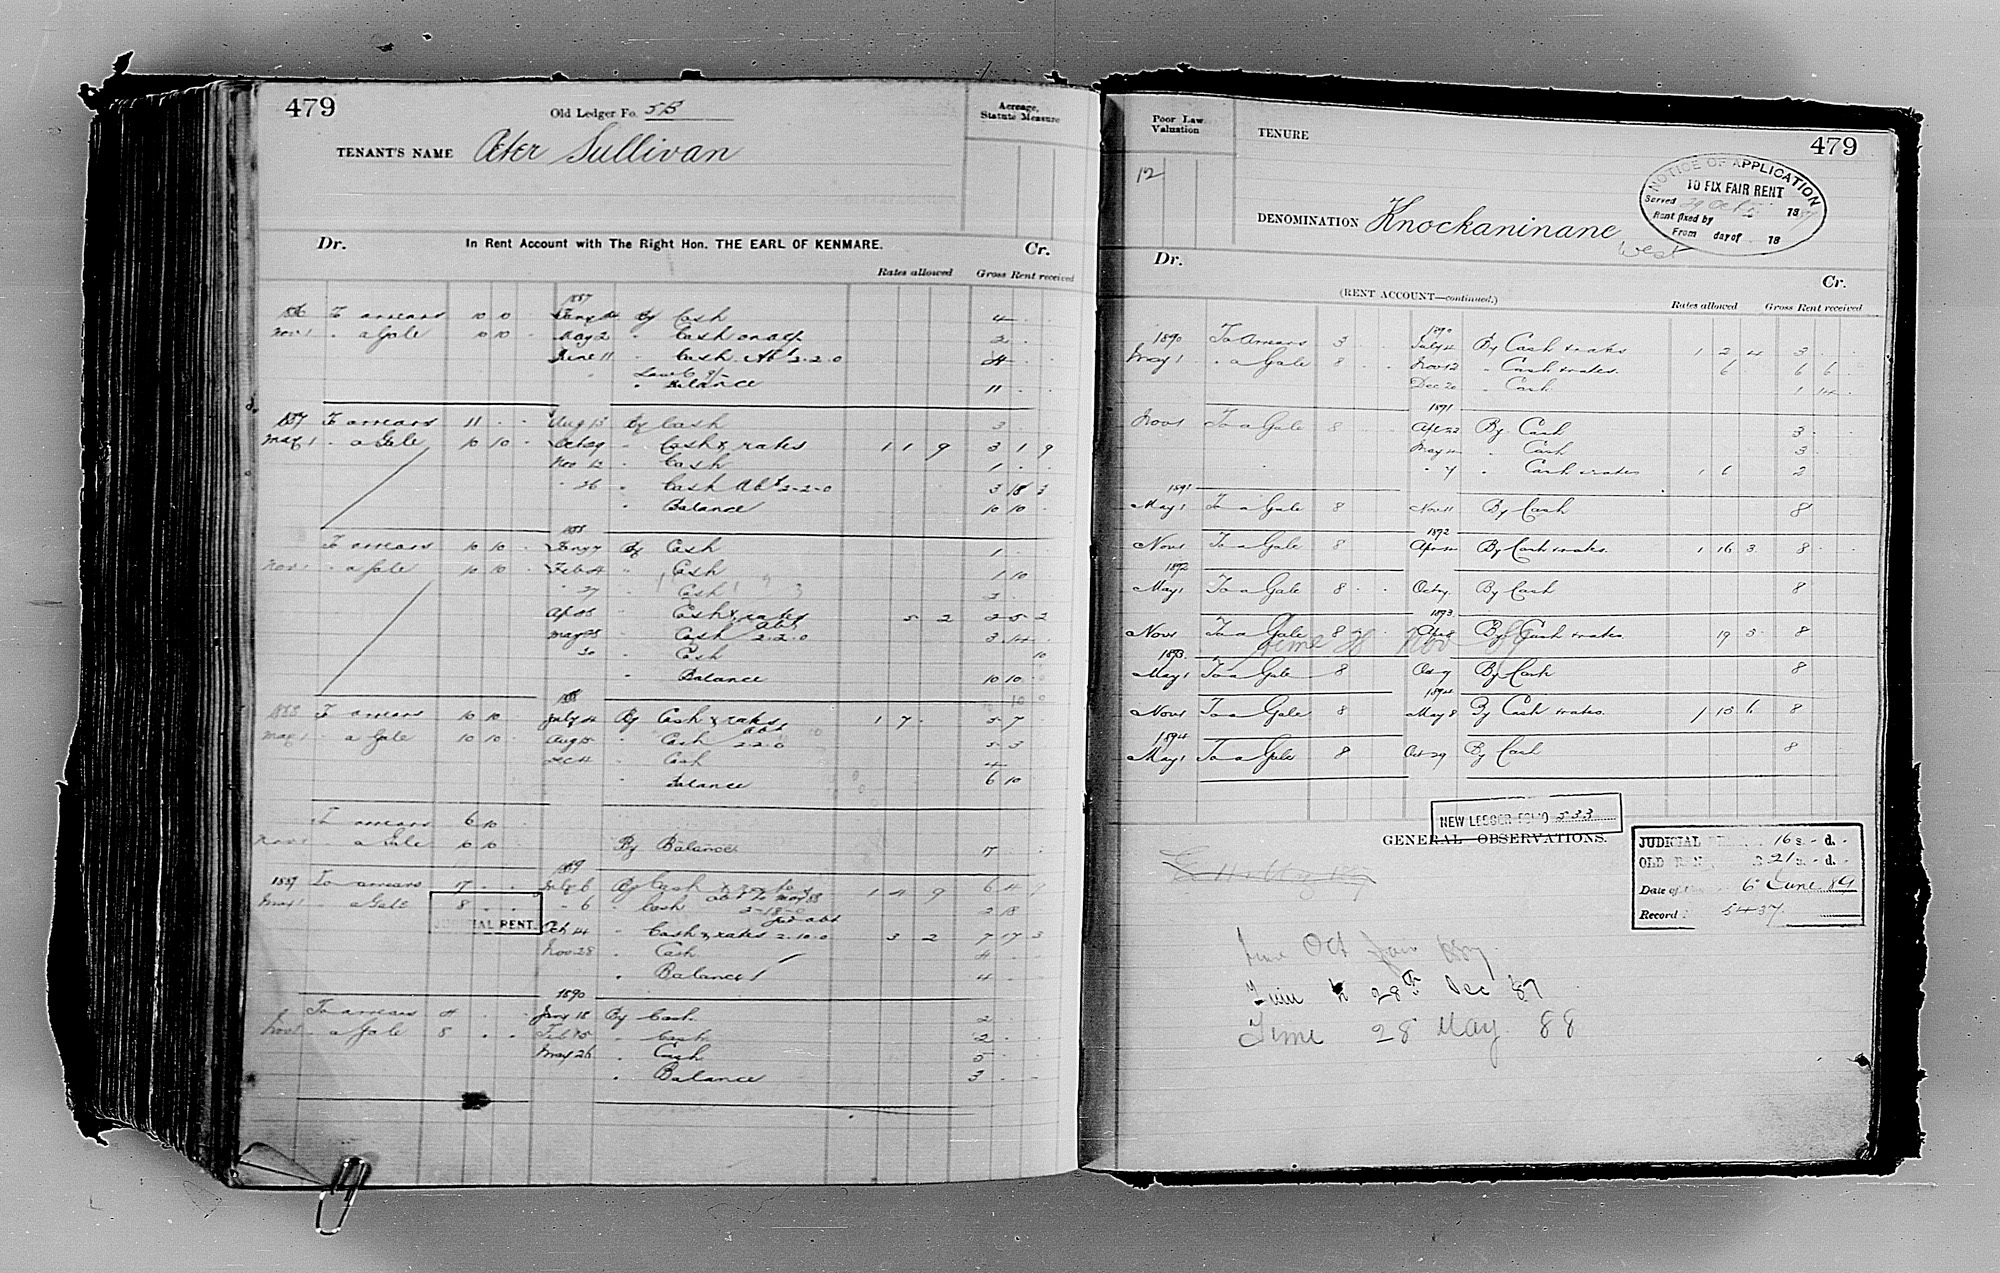 479
Old Ledger Fo. 5B
Acreage, Statute Measure
TENANT'S NAME Peter Sullivan
Dr. In Rent Account with The Right Hon. THE EARL OF KENMARE. Cr.
Rates allowed Gross Rent received
1887
1886 To arrears 10 10 Jany By Cash 4 . .
Nov 1 " a Gale 10 10 May 2 " Cash on a/c 2 . .
June 11 " Cash Abt 2-2-0 4
" Balance 11 . .
1887 To arrears 11 . . Aug 13 By Cash 3 . .
May 1 " a Gale 10 10 . Oct 29 " Cash & rates 1 1 9 3 1 9
Nov 12 " Cash 1 . .
" 26 " Cash Abt 2-2-0 3 18 3
" Balance 10 10 .
1888
To arrears 10 10 . Jany 7 By Cash 1 .
Nov 1 " a Gale 10 10 . Feb 4 " Cash 1 10
" 27 Cash 3
Ap " Cash & rates 5 2 2 5 2
May " Cash abt 2.2.0 3 14 .
30 " Cash 10
" Balance 10 10
1888
1888 To arrears 10 10 . July 4 By Cash & rates 1 7 . 5 7
May 1 " a Gale 10 10 . Aug 15 " Cash abt 2.2.0 5 3
Dec 4 " Cash 4
" Balance 6 10
To arrears 6 10
Nov 1 " a Gale 10 10 By Balance 17 . .
1889
1889 To arrears 17 . . July 6 By Cash & rates 1 4 9 6 4 9
May 1 " a Gale 8 . . " 6 " Cash abt to May 88 2-18-0 2 18
JUDICIAL RENT.
Oct 14 " Cash & rates 2.10.0 3 2 7 17 3
Nov 28 " Cash 4
" Balance 4 . .
1890
To arrears 4 . . Jany 18 By Cash 2 . .
Nov 1 " a Gale 8 . . Feb 15 " Cash 2 . .
May 26 " Cash 5 . .
" Balance 3 . .
Poor Law Valuation
TENURE
479
12
DENOMINATION Knockaninane
West
NOTICE OF APPLICATION
TO FIX FAIR RENT
Served 29 Oct 1887
Rent fixed by
From day of 18
Dr. Cr.
(RENT ACCOUNT—continued.)
Rates allowed Gross Rent received
1890
1890 To Arrears 3 . . July 4 By Cash & rates 1 2 4 3 . .
May 1 " a Gale 8 . . Nov 12 " Cash & rates. 6 6 6
Dec 20 " Cash 1 14
1891
Nov 1 To a Gale 8 . . Apr 22 By Cash 3 .
May " Cash 3 .
" 7 " Cash & rates 1 6 2
1891
May 1 To a Gale 8 Nov 11 By Cash 8
1892
Nov 1 To a Gale 8 Apr By Cash & rates. 1 16 3 8
1892
May 1 To a Gale 8 Oct 7 By Cash 8
1893
Nov 1 To a Gale 8 Apr 8 By Cash & rates 19 3 8
Time Nov
1893
May 1 To a Gale 8 Oct 7 By Cash 8
1894
Nov 1 To a Gale 8 May 8 By Cash & rates. 1 15 6 8
1894
May 1 To a Gale 8 Oct 29 By Cash 8
NEW LEDGER FOLIO 533
GENERAL OBSERVATIONS.
JUDICIAL 16 s. - d. -
OLD 21 s. - d. -
Date of 6 June 89
Record 5437
Time Oct
Time to 28th Dec 87
Time 28 May 88